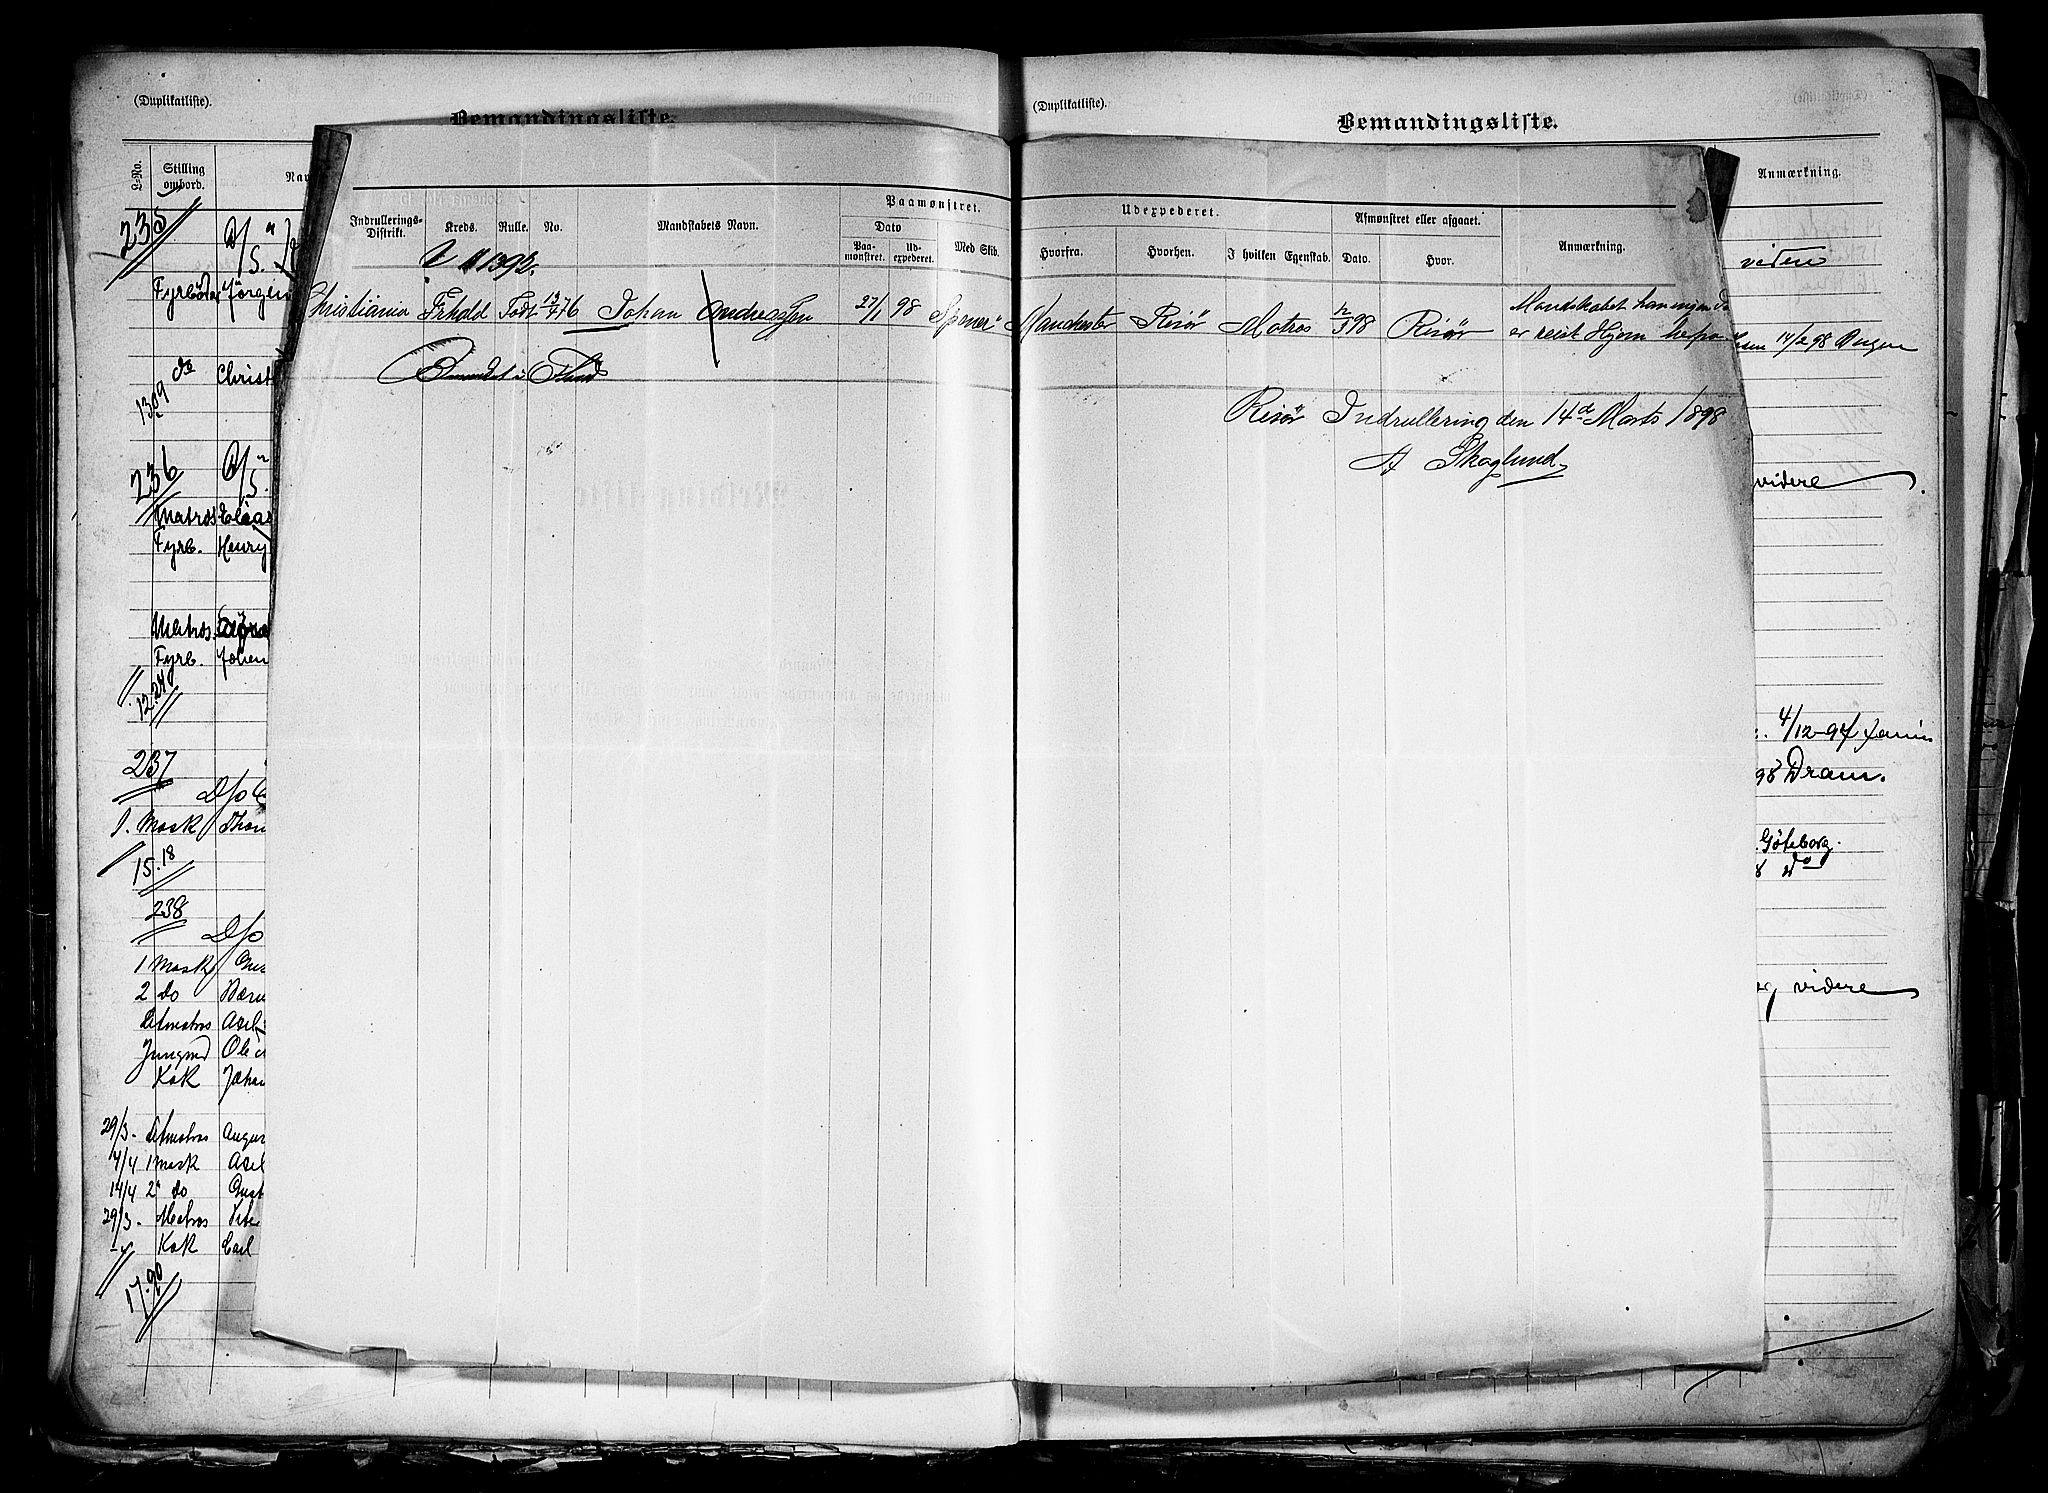 (Duplikatliste).
Bemandingsliste.
L-No.
Stilling ombord.
Nav
235
D/S.
Fyrböder Jörgen
do Christ
1309
236
D/S.
Matros Elias
Fyrb. Henry
Matros.
Fyrb. Johan
12.24
237
D/s
1. Mask Thom
15.18
238
D/s
1 Mask
2 do
Letmatros Axel
Jungmd Ole
Kok Johan
29/3- Letmatros Augus
4/4 1 Mask Axel
14/4 2 do Gust
29/3- Matros Pete
Kok Carl
17.90
Indrullerings-Distrikt.
Kreds.
Rulle.
No.
Mandskabets Navn.
Paamonstret.
Dato
Paa-monstret.
Ud-expederet.
Med Skib.
Udexpederet.
Hvorfra.
Hvorhen.
I hvilken Egenskab.
Afmonstret eller afgaaet.
Dato.
Hvor.
Anmærkning.
1392.
Christiania Frhold Født 13/4 76 Johan Andreassen 27/1 98 Manchester Risör Matros 12/3 98 Risör Mandskabet har ingen
er reist Hjem herfra
Risör Indrullering den 14de Marts 1898
A Skoglund
(Duplikatliste).
Bemandingsliste.
Anmærkning.
14/2 98 Bergen
videre
4/12-97
98 Dram.
Göteborg.
8 do
videre